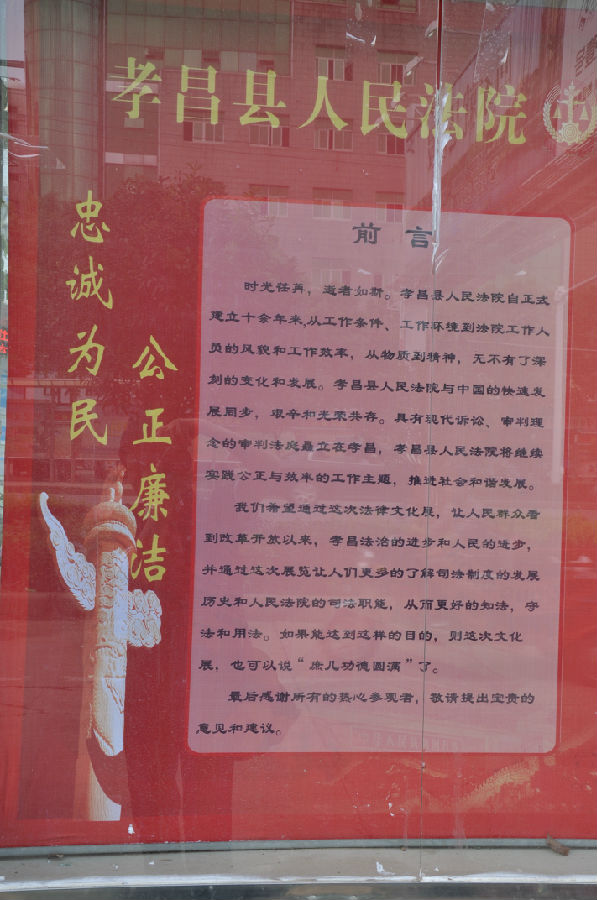 孝昌县人民法院
忠诚为民
公正廉洁
前言
时光荏苒，逝者如斯。孝昌县人民法院自正式
建立十余年来,从工作条件、工作环境到法院工作人
员的风貌和工作效率，从物质到精神，无不有了深
刻的变化和发展。孝昌县人民法院与中国的快速发
展同步，艰辛和光荣共存。具有现代诉讼、审判理
念的审判法庭矗立在孝昌，孝昌县人民法院将继续
实践公正与效率的工作主题，推进社会和谐发展。
我们希望通过这次法律文化展，让人民群众看
到改革开放以来，孝昌法治的进步和人民的进步，
并通过这次展览让人们更多的了解司法制度的发展
历史和人民法院的司法职能，从而更好的知法，守
法和用法。如果能达到这样的目的，则这次文化
展，也可以说“庶几功德圆满”了。
最后感谢所有的热心参观者，敬请提出宝贵的
意见和建议。